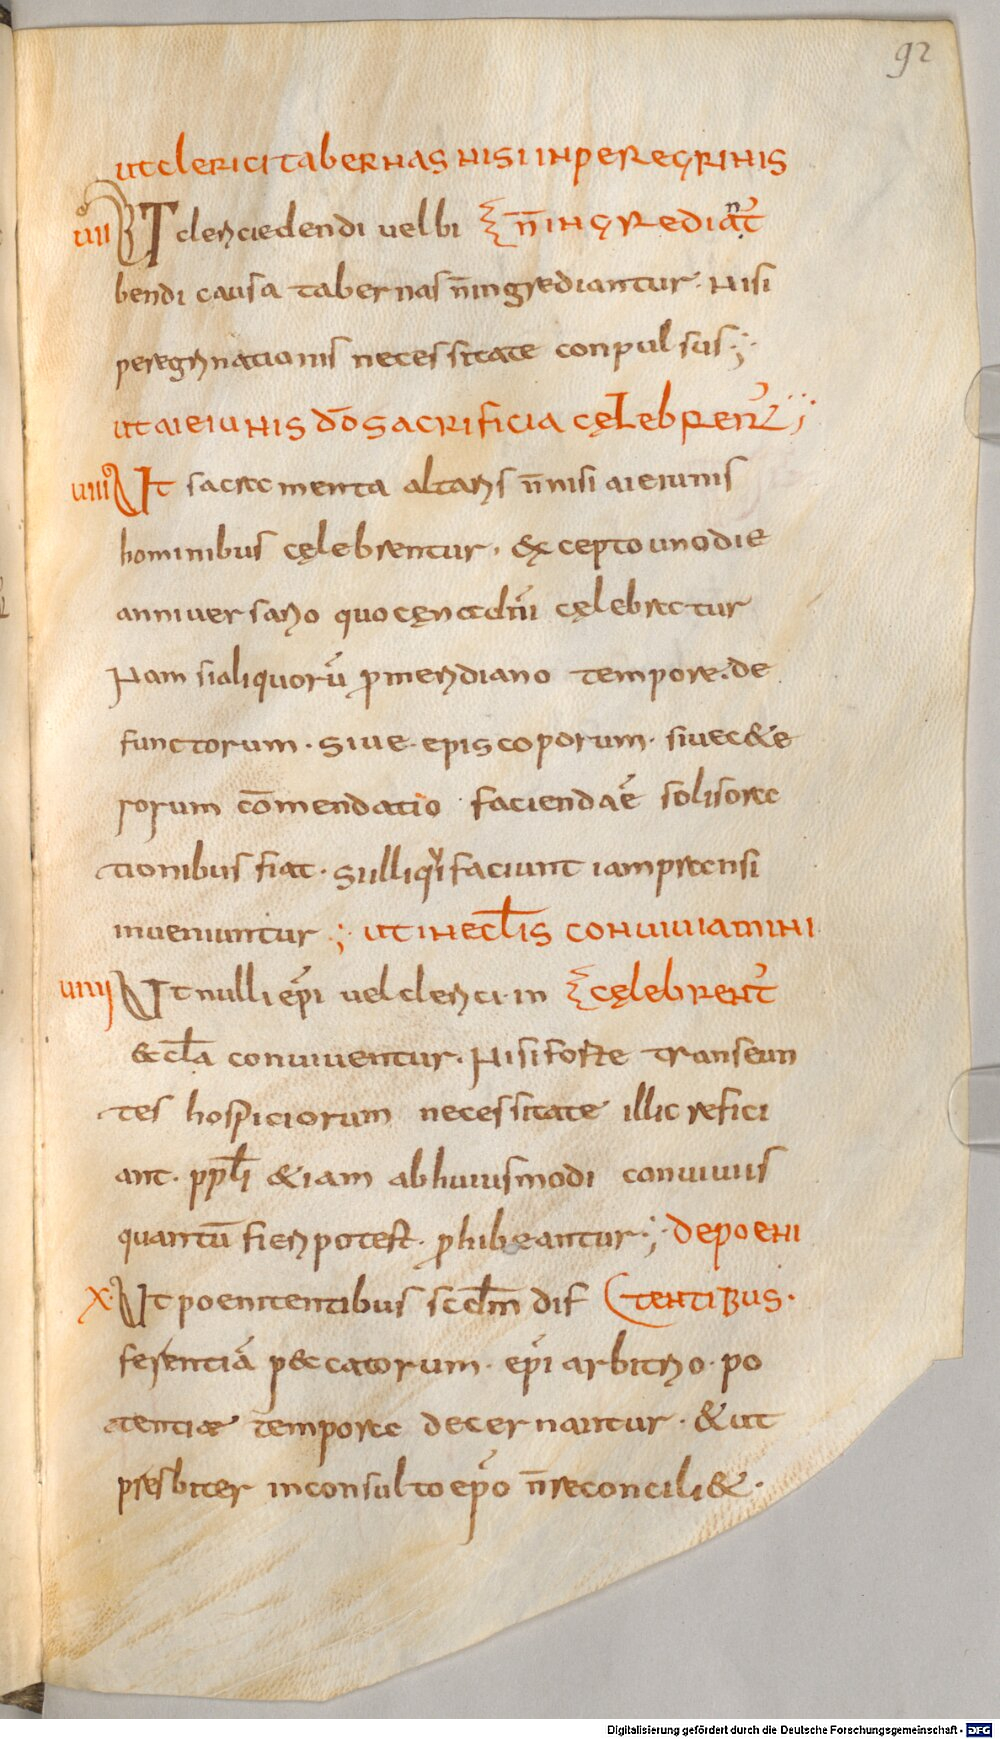 92
ut clerici tabernas nisi in peregrinis
VII UT clerici edendi vel bi n̄ ingrediant̄
bendi causa tabernas n̄ ingrediantur. Nisi
peregrinationis necessitate conpulsus;
ut a ieiunis dō sacrificia cęlebrent̄;
VIII Ut sacramenta altaris n̄ nisi a ieiunis
hominibus cęlebrentur, excepto uno die
anniversario quo cęna dn̄i cęlebratur
Nam si aliquorū pmeridiano tempore. de
functorum. sive. episcoporum. sive cete
rorum cōmendatio faciendaē solis ora
tionibus fiat. si illi qui faciunt iam pransi
inveniuntur; ut in ecl̄is convivia mini
VIIII Ut nulli epī vel clerici in cęlebrent̄
ecl̄a conviventur. Nisi forte transeun
tes hospiciorum necessitate illic refici
ant. ppl̄i etiam ab huiusmodi conviviis
quantū fieri potest. phibeantur; de poeni
X Ut poenitentibus scdm̄ dif tentibus.
ferentiā peccatorum. epī arbitrio. po
tentiae tempora decernantur. et ut
presbiter inconsulto epō n̄ reconciliet.
Digitalisierung gefördert durch die Deutsche Forschungsgemeinschaft - DFG